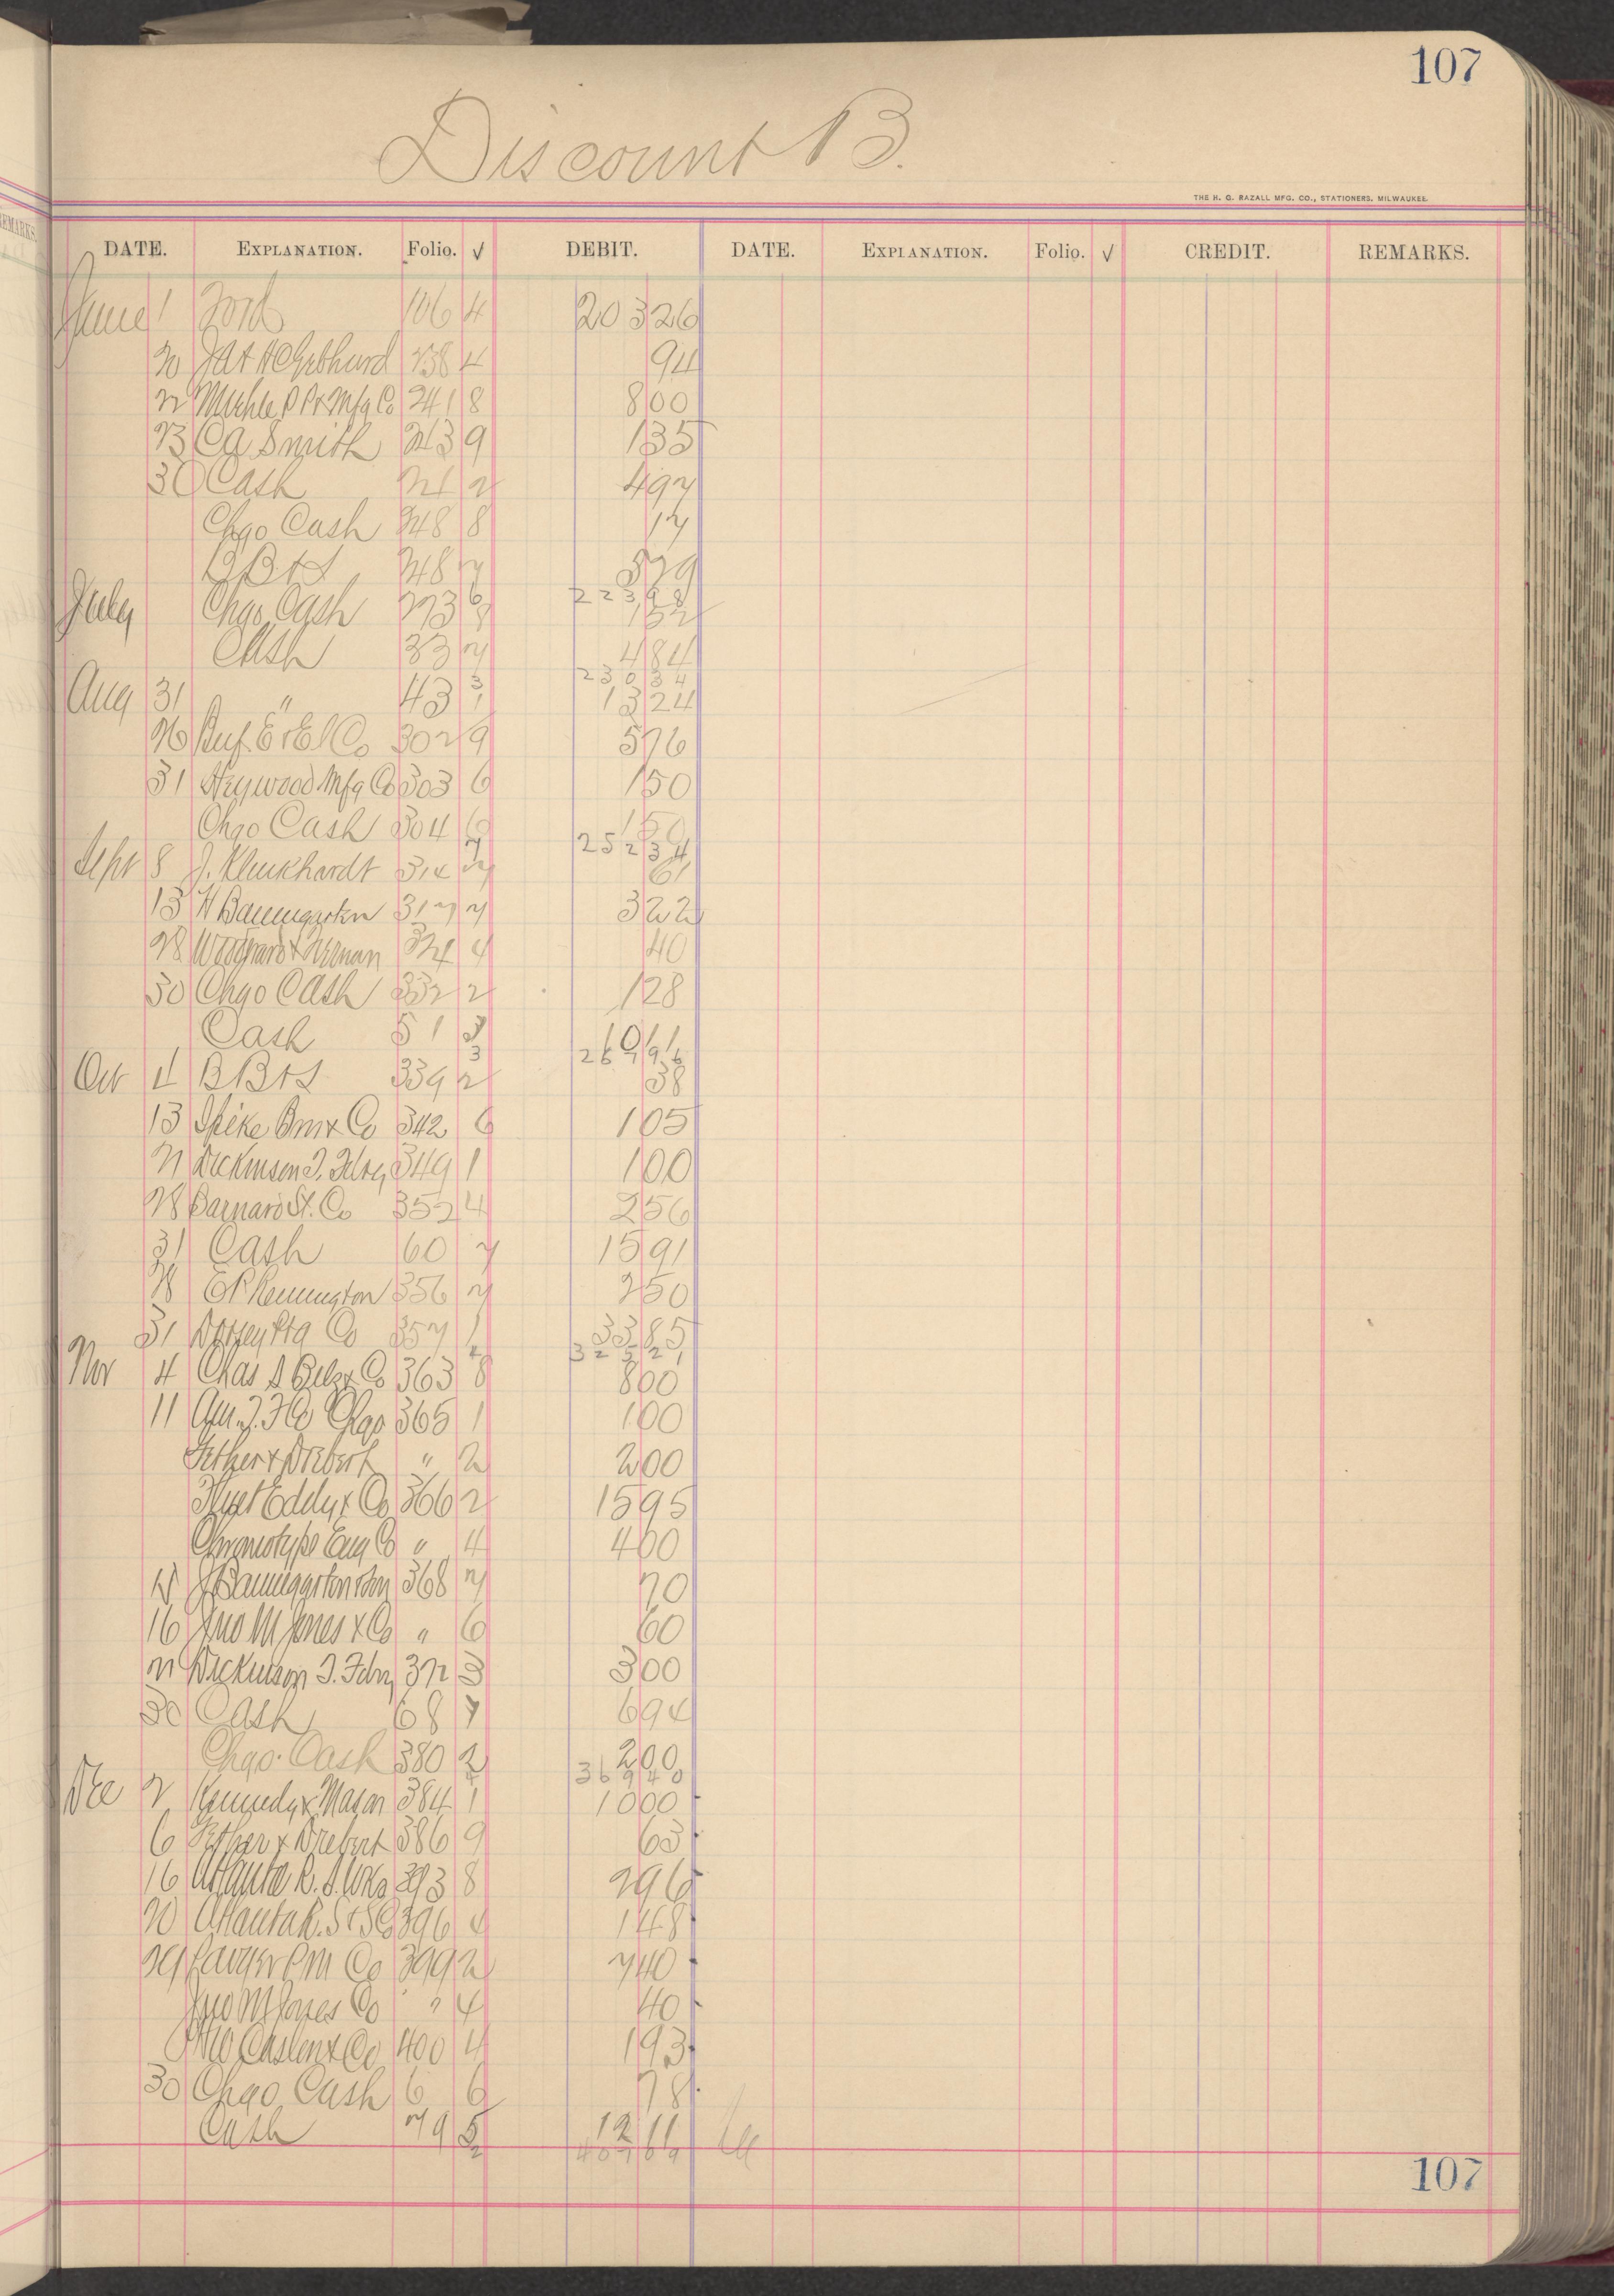 107
Discount B.
THE H. G. RAZALL MFG. CO., STATIONERS, MILWAUKEE.
REMARKS
DATE. EXPLANATION. Folio. √ DEBIT. DATE. EXPLANATION. Folio. √ CREDIT. REMARKS.
June 1 Ford 106 4 203 26
20 238 4 94
22 Miehle P Pr Mfg Co 241 8 8 00
23 CA Smith 243 9 1 35
30 Cash 2 4 97
Chgo Cash 248 8 17
BB&S 248 7 3 79
223 98
July Chgo Cash 273 8 1 52
Cash 33 7 4 84
230 34
Aug 31 " 43 1 13 24
26 Buf. E & El Co 302 9 5 76
31 Heywood Mfg Co 303 6 1 50
Chgo Cash 304 6 1 50
252 34
Sept 8 J. Klinkhardt 314 7 61
13 H Baumgarten 317 7 3 22
28 324 4 40
30 Chgo Cash 332 2 1 28
Cash 51 3 10 11
267 96
Oct 4 BB&S 339 2 38
13 342 6 1 05
21 Dickinson T. Fdry 349 1 1 00
28 Barnard St. Co 352 4 2 56
31 Cash 60 7 15 91
28 E P Remington 356 7 2 50
31 Co 357 1 33 85
325 21
Nov 4 Chas Co 363 8 8 00
11 Am. T. F Co Chgo 365 1 1 00
" 2 2 00
Eddy & Co 366 2 15 95
Chromotype Eng Co " 4 4 00
Baumgarten 368 7 70
16 Jno M Jones & Co " 6 60
21 Dickinson T. Fdry 372 3 3 00
30 Cash 68 7 6 94
Chgo. Cash 380 2 2 00
369 40
Dec 2 Kennedy & Mason 384 1 10 00
6 386 9 63
16 Atlanta R. S. Wks 393 8 2 96
20 Atlanta R. S & S Co 396 4 1 48
29 Co 399 2 7 40
Jno M Jones Co " 4 40
Caslon & Co 400 4 1 93
30 Chgo Cash 6 6 78
Cash 79 5 12 11
407 09
107